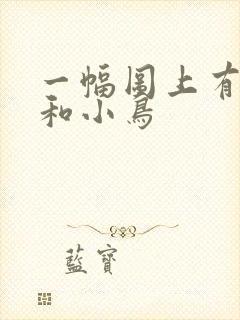 一幅图上有
和小鳥
藍寶